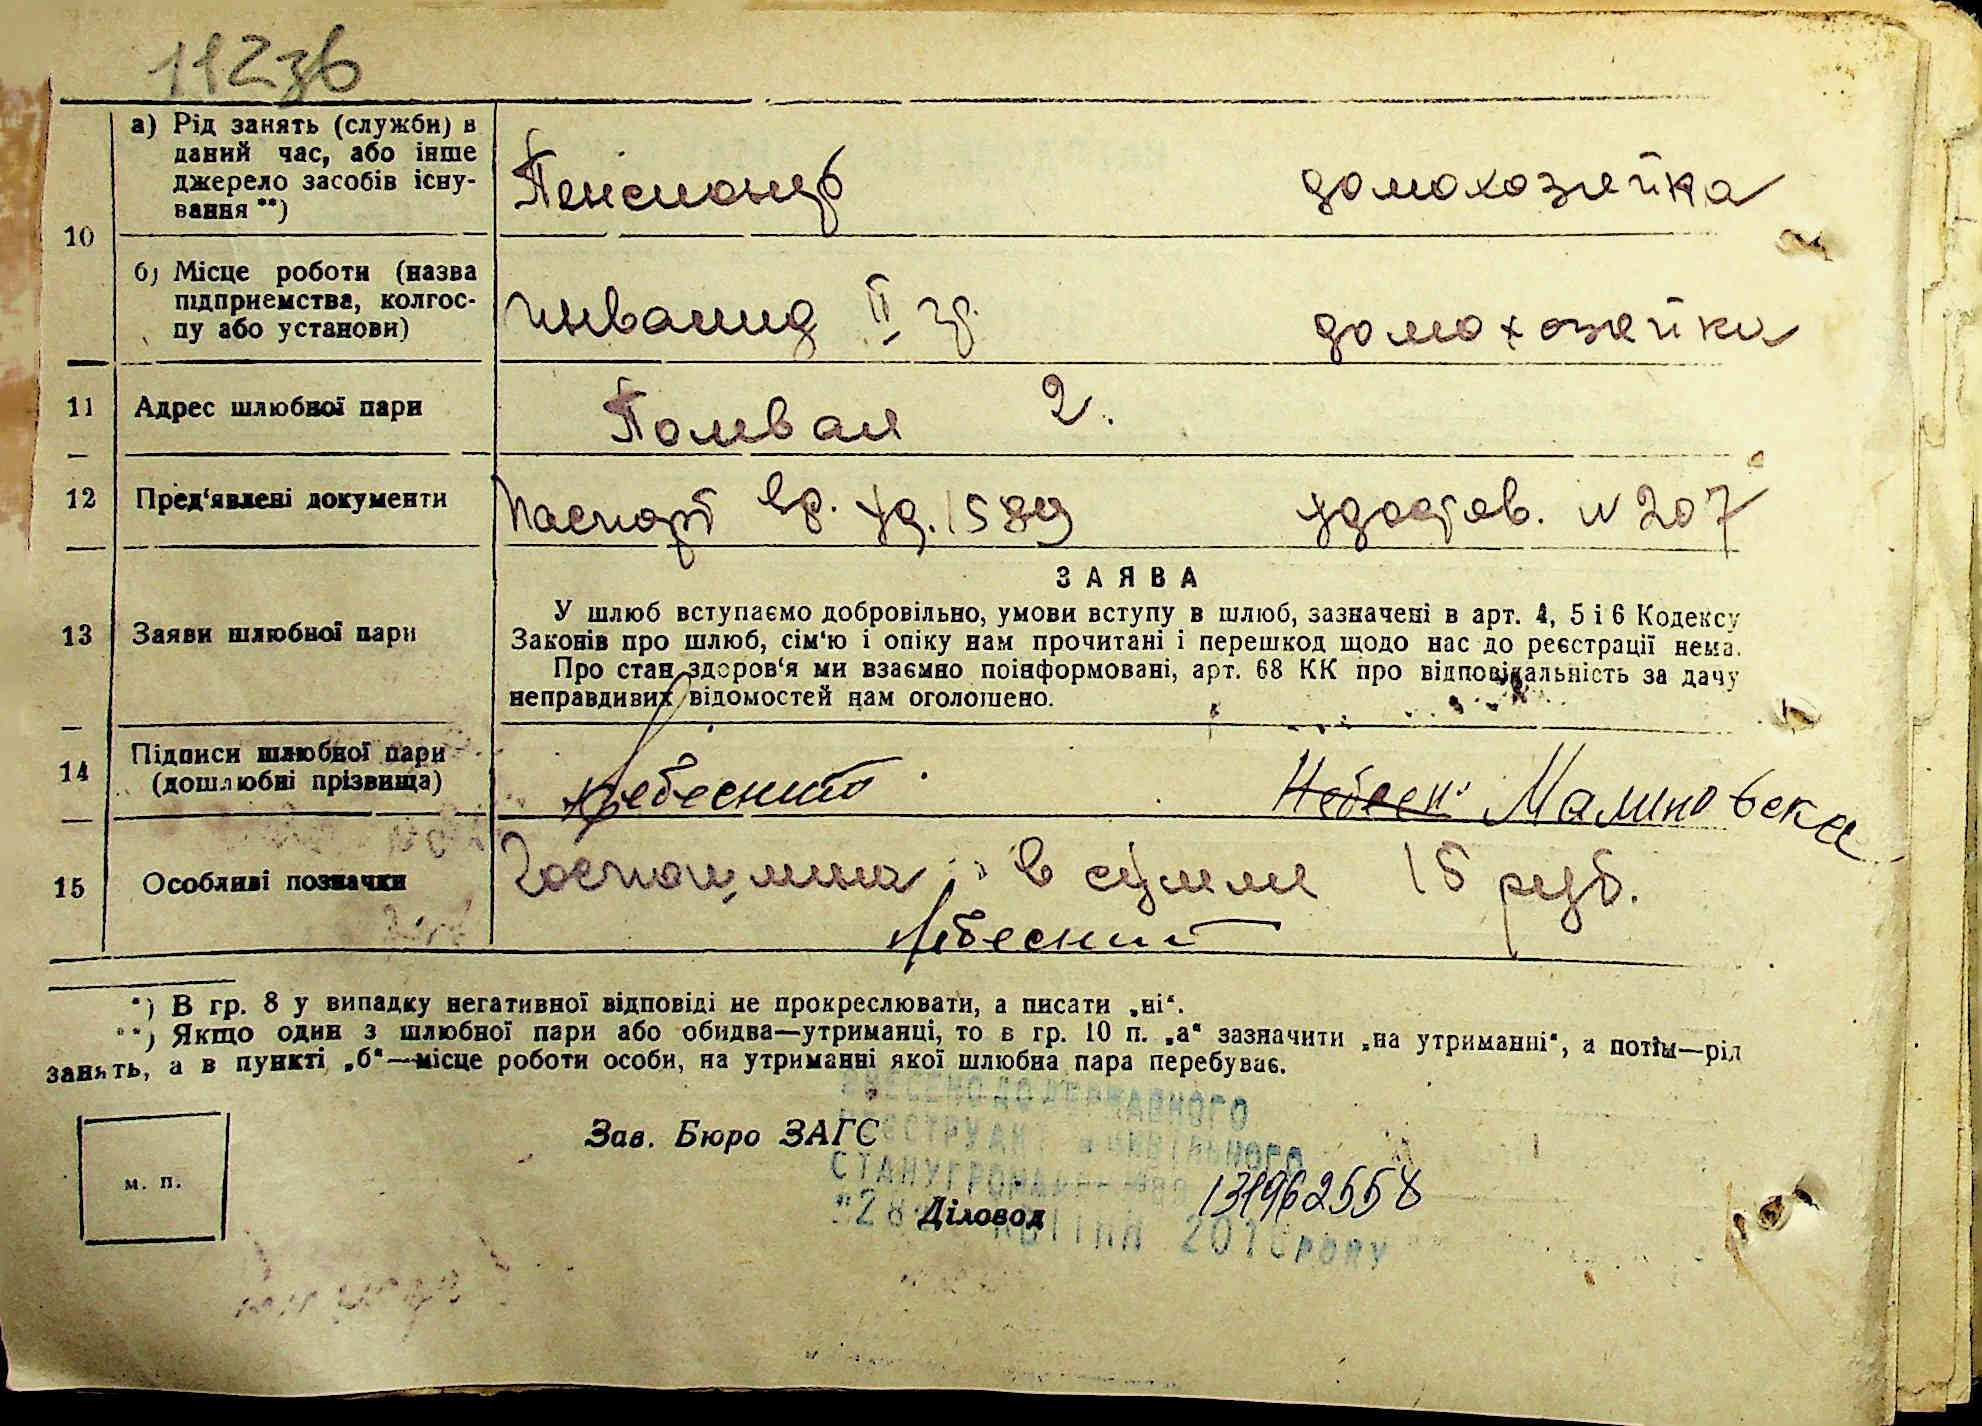 112зв
а) Рід занять (служби) в
даний час, або інше
джерело засобів існу-
вання **)
Пенсионер
домохозяйка
10
б) Місце роботи (назва
підприємства, колгос-
пу або установи)
инвалид II гр.
домохозяйка
11 Адрес шлюбної пари
Полевая 2.
12 Пред'явлені документи
паспорт вр. уд. 1589
удостов. N 207
ЗАЯВА
У шлюб вступаємо добровільно, умови вступу в шлюб, зазначені в арт. 4, 5 і 6 Кодексу
13 Заяви шлюбної пари
Законів про шлюб, сім'ю і опіку нам прочитані і перешкод щодо нас до реєстрації нема.
Про стан здоров'я ми взаємно поінформовані, арт. 68 КК про відповідальність за дачу
неправдивих відомостей нам оголошено.
14 Підписи шлюбної пари
(дошлюбні прізвища)
Небесний
Небесн Малиновска
15 Особливі позначки
Госпошлина в сумме 15 руб.
Небесний
*) В гр. 8 у випадку негативної відповіді не прокреслювати, а писати „ні“.
**) Якщо один з шлюбної пари або обидва—утриманці, то в гр. 10 п. „а“ зазначити „на утриманні“, а потім—рід
занять, а в пункті „б“—місце роботи особи, на утриманні якої шлюбна пара перебуває.
ВНЕСЕНО ДО ДЕРЖАВНОГО
Зав. Бюро ЗАГС
РЕЄСТРУ АКТІВ ЦИВІЛЬНОГО
СТАНУ ГРОМАДЯН
м. п.
131962558
"28" Діловод
квітня 201 року